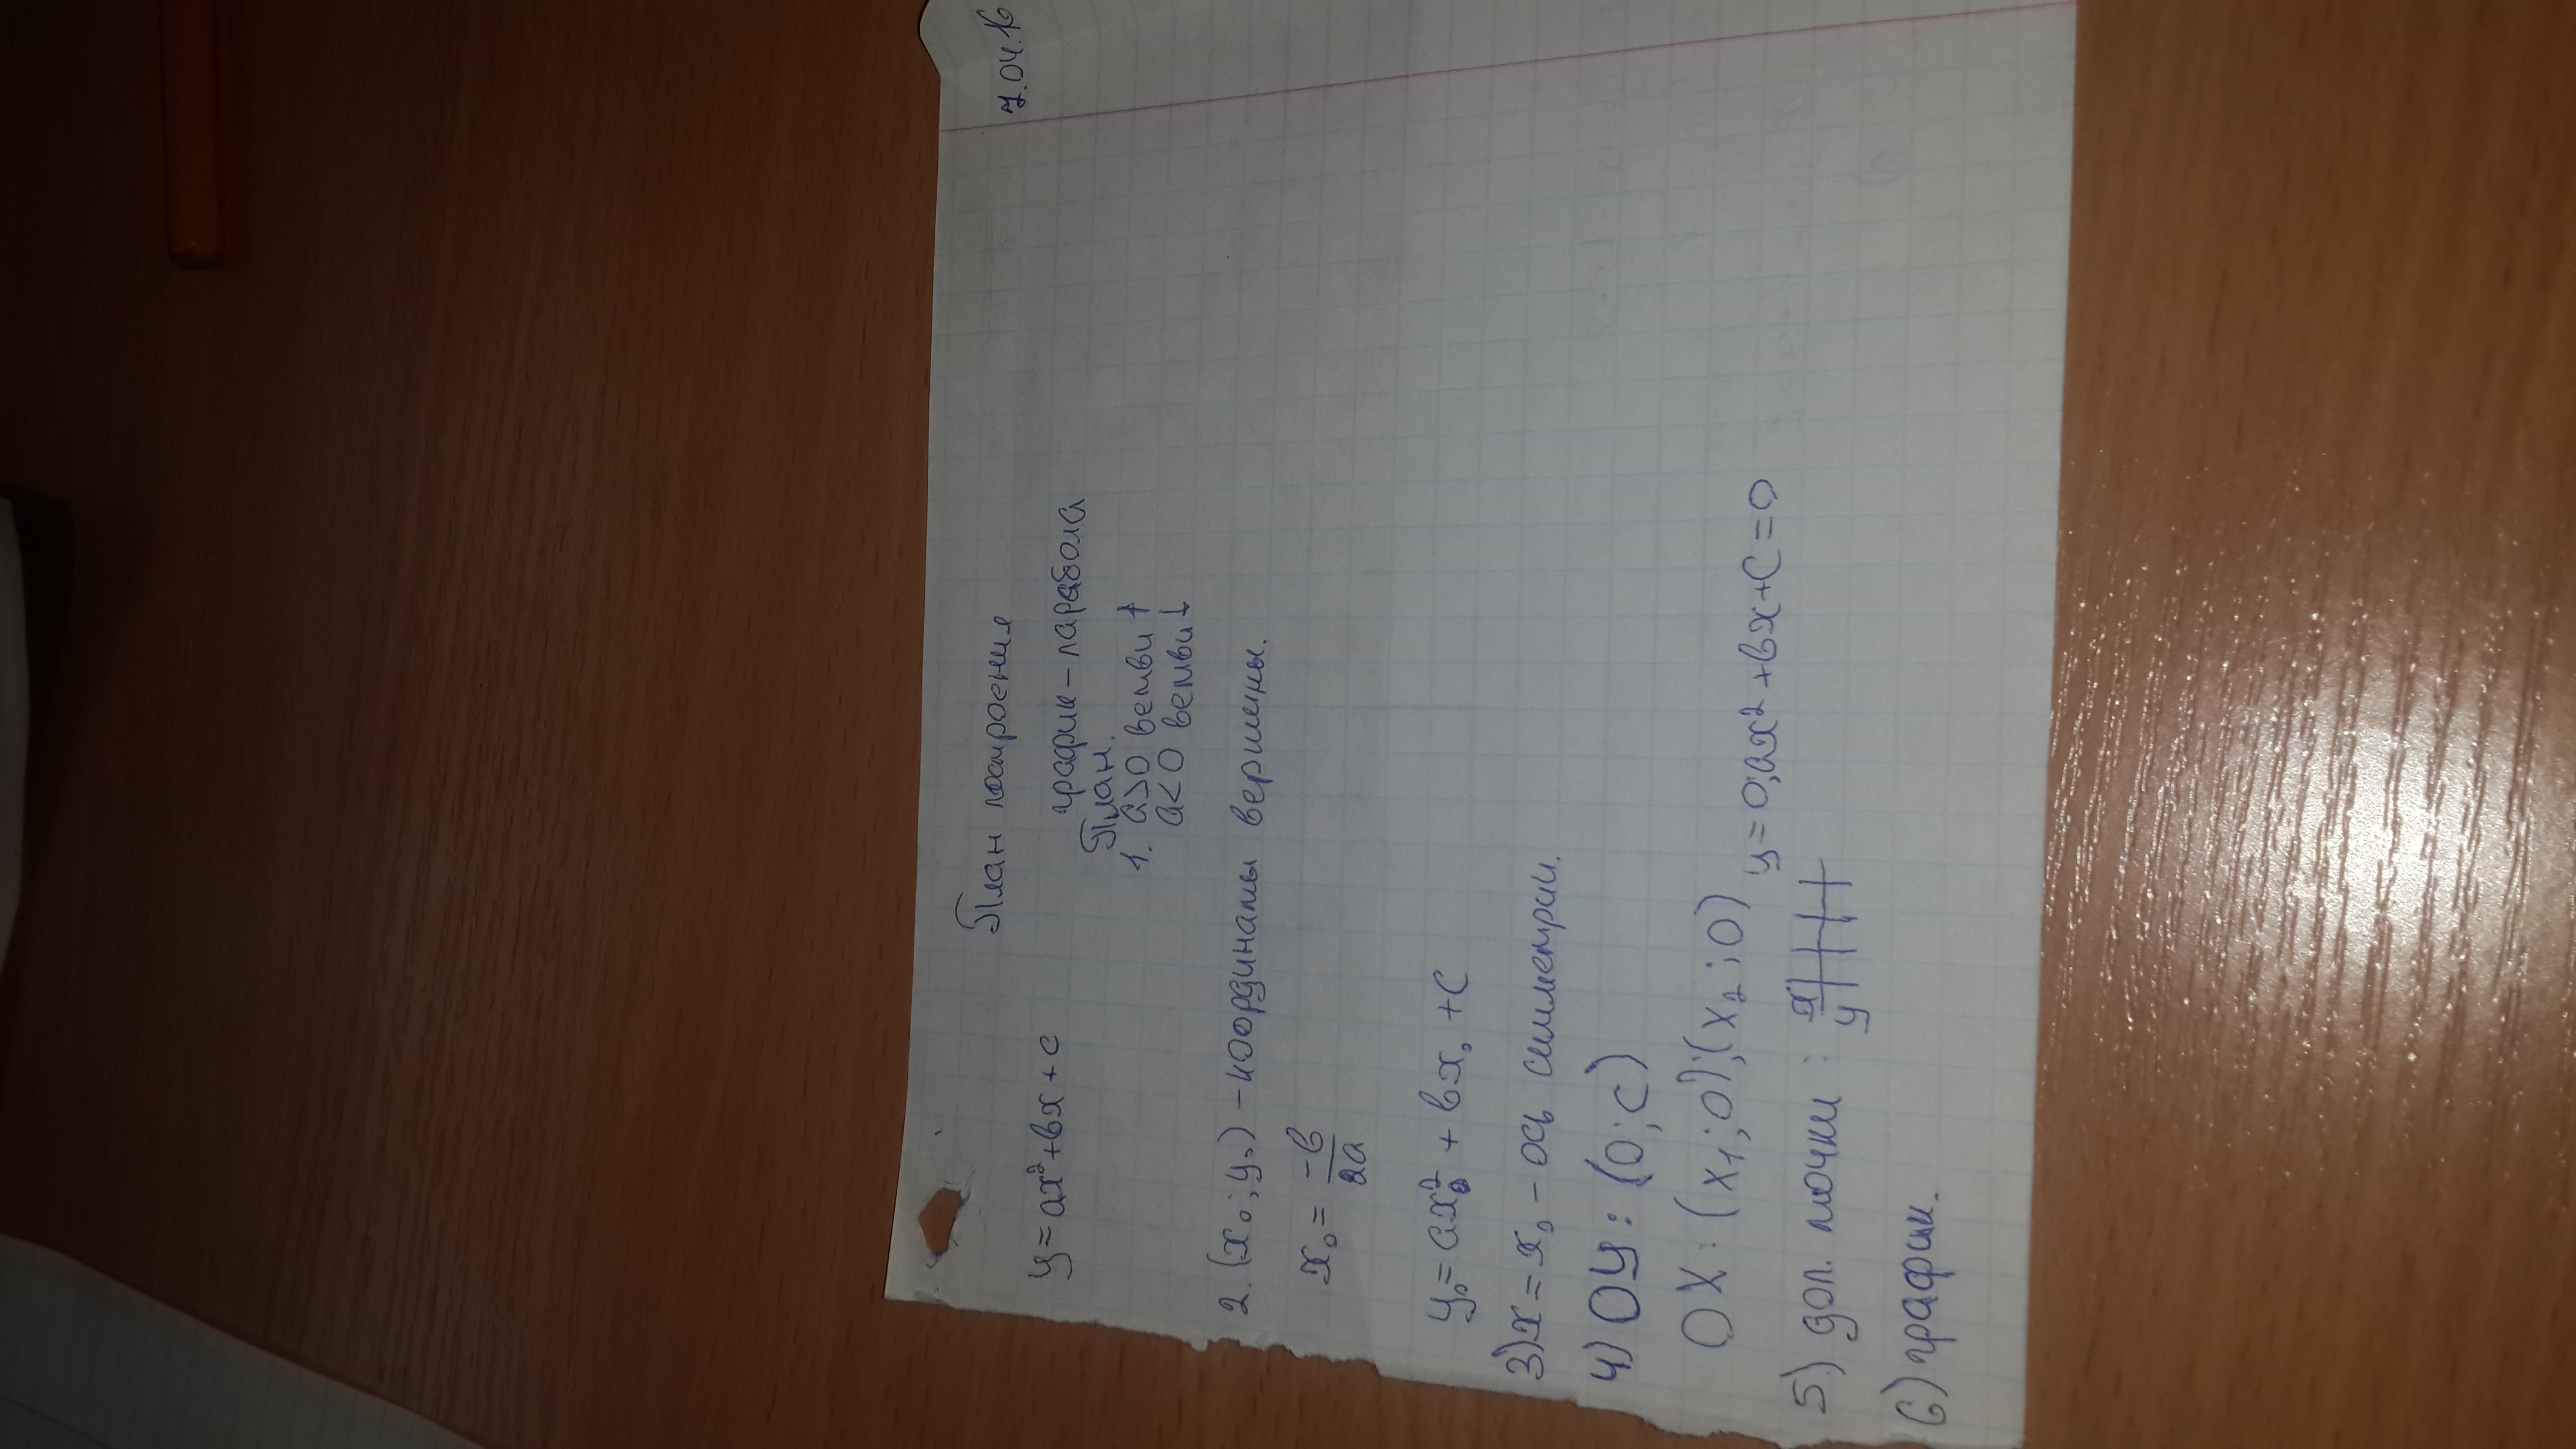 7.04.16
План построения
y = ax² + bx + c
график – парабола
План.
1. a > 0 ветви ↑
a < 0 ветви ↓
2. (x₀ ; y₀) – координаты вершины.
x₀ = -b/2a
y₀ = ax₀² + bx₀ + c
3) x = x₀ – ось симметрии.
4) OY : (0 ; c)
OX : (x₁ ; 0) ; (x₂ ; 0)
y = 0; ax² + bx + c = 0
5) доп. точки : x
y
6) график.